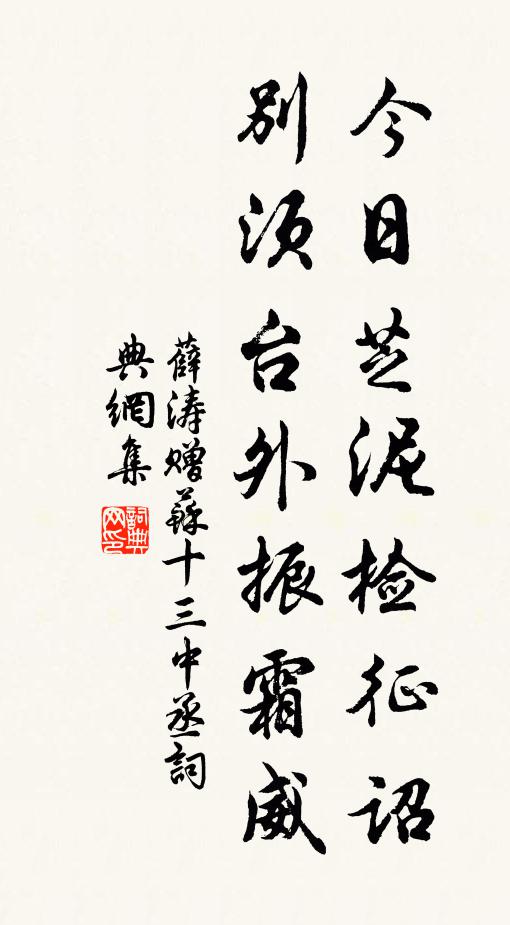 今日芝泥检征诏
别须台外振霜威
薛涛赠蘇十三中丞詞
典網集
詞典网印